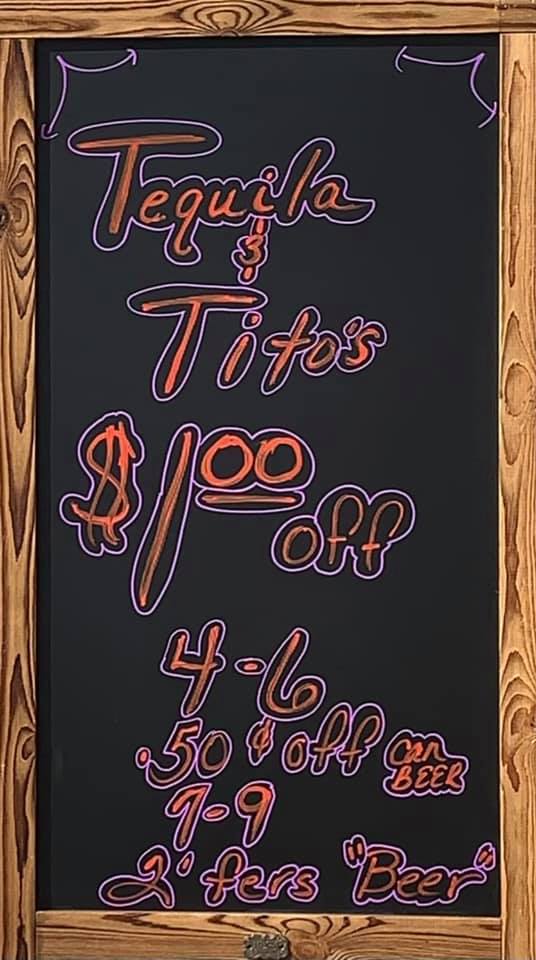 Tequila
&
Tito's
$1.00 off
4-6
.50 ¢ off can BEER
7-9
2' fers "Beer"